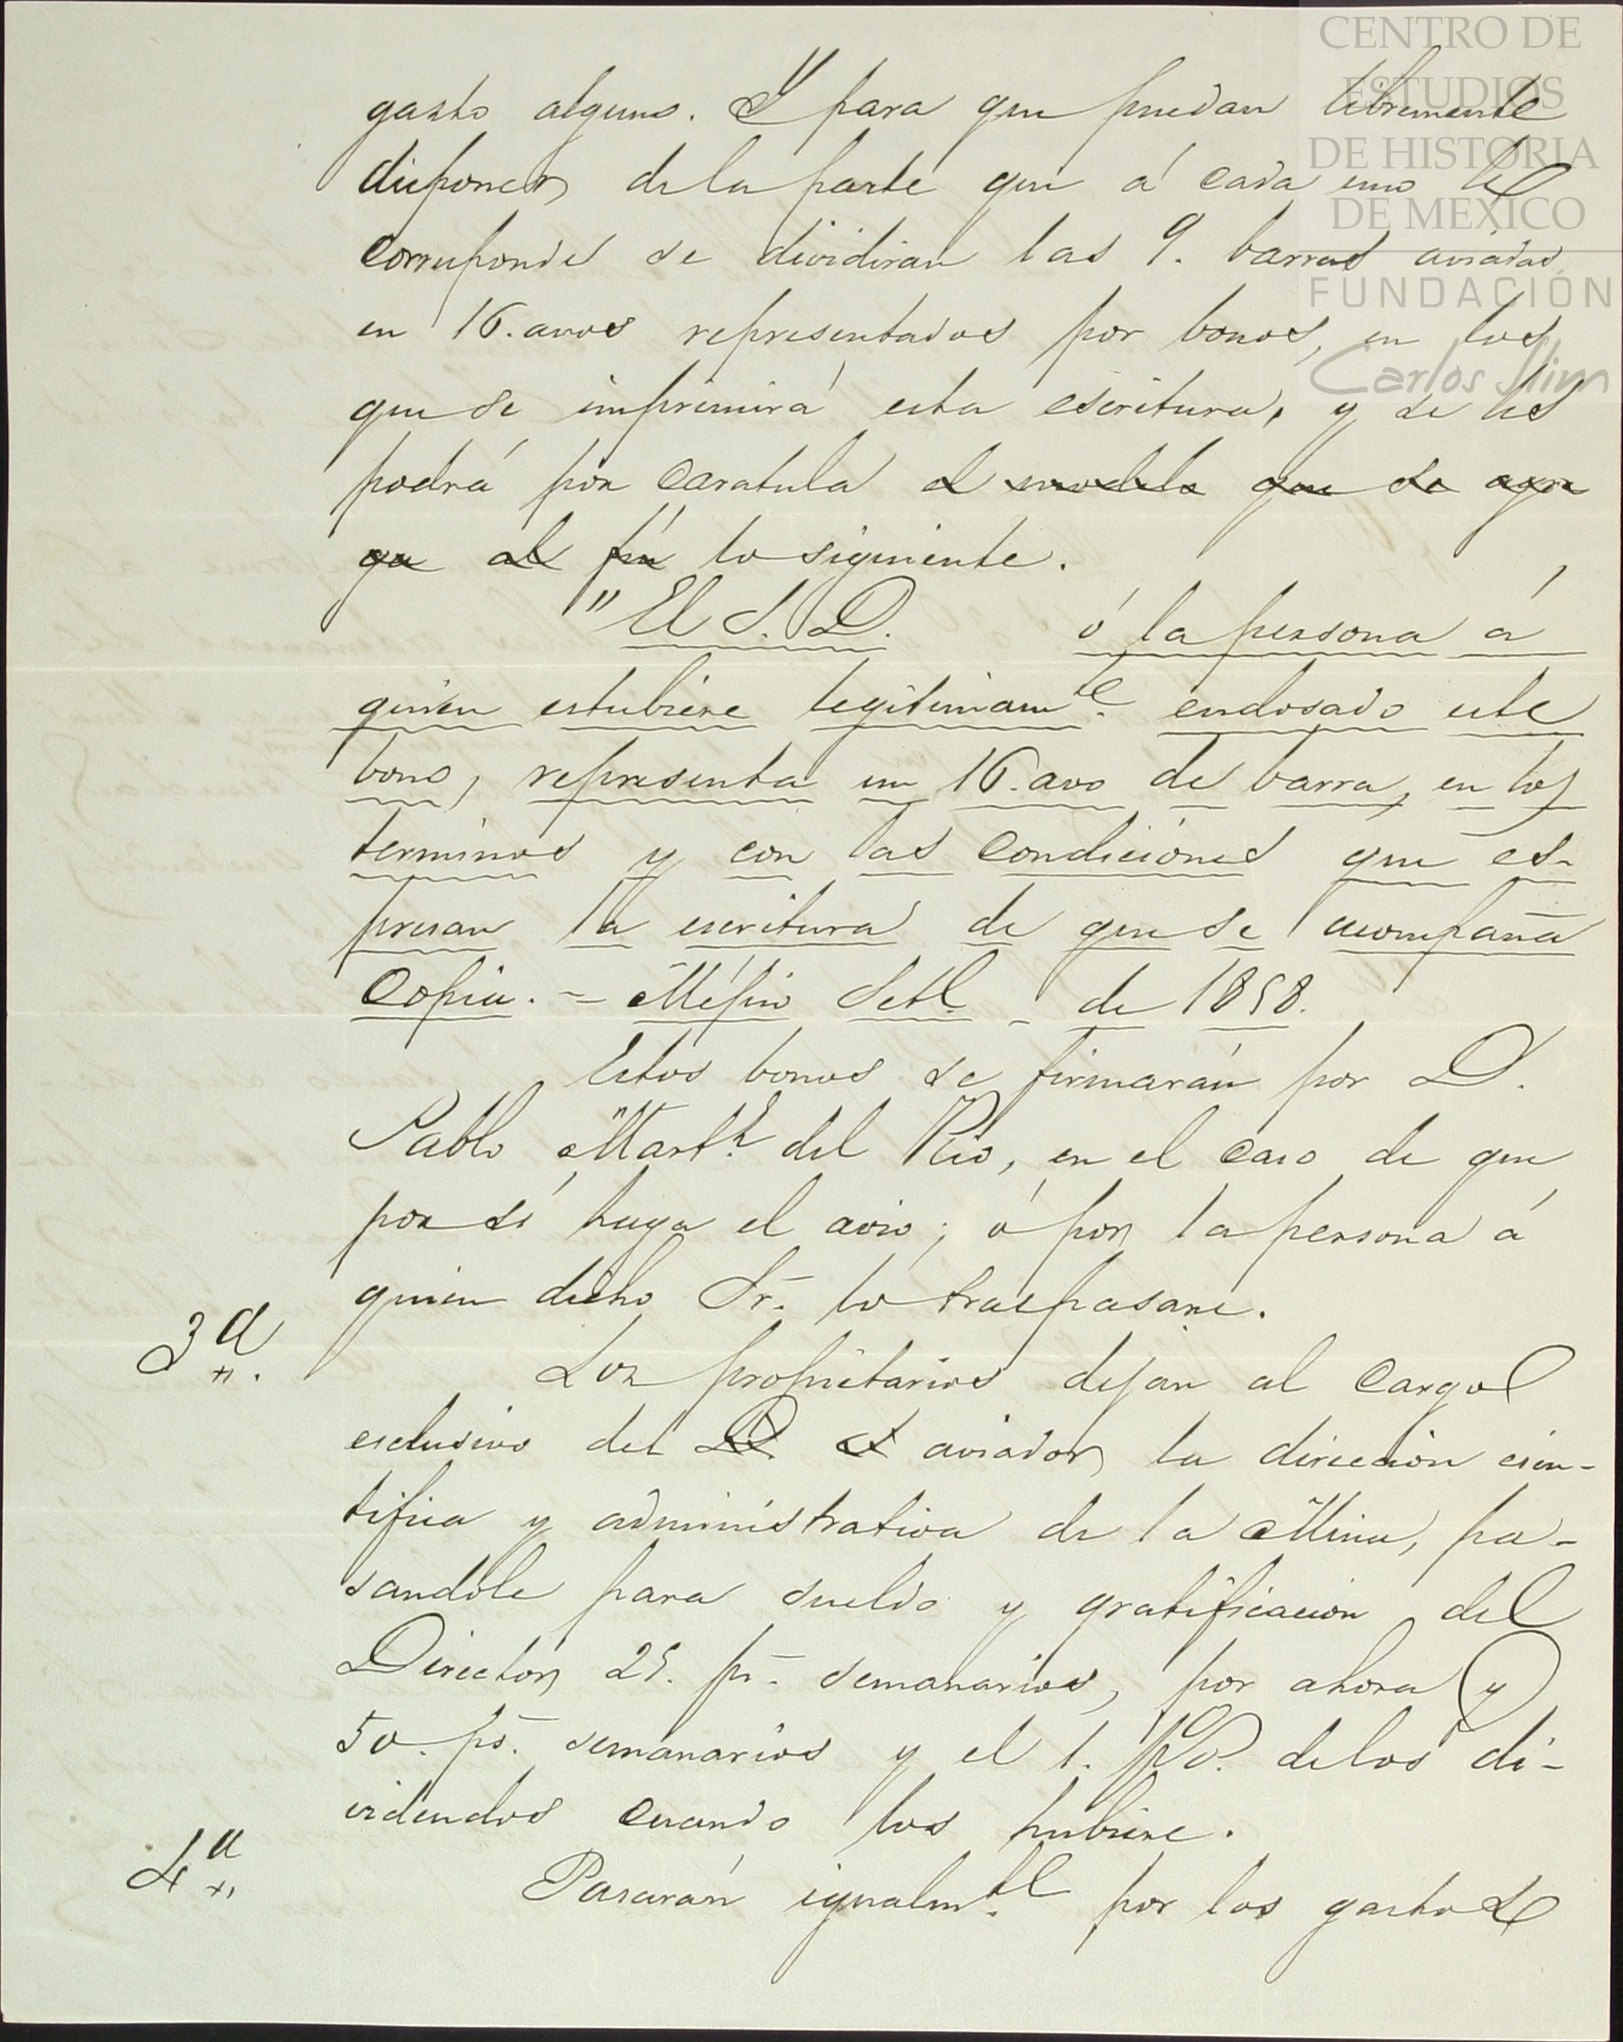 CENTRO DE
ESTUDIOS
DE HISTORIA
DE MEXICO
FUNDACIÓN
Carlos Slim
gasto alguno. Y para que puedan libremente
disponer de la parte que á cada uno le
corresponde se dividiran las 9. barras aviadas
en 16.avos representados por bonos, en los
que se imprimirá esta escritura, y se les
podrá por caratula el modelo que se agre
ga al fin lo siguiente.
"El S. D. ó la persona á
quien estubiere legitimamte. endosado este
bono, representa un 16.avo de barra, en los
terminos y con las condiciones que es-
presan la escritura de que se acompaña
Copia. = Méjico Sete. - de 1858.
Estos bonos se firmarán por D.
Pablo Martz. del Rio, en el caso de que
por sí haga el avio; ó por la persona á
quien dicho Sr. lo traspasare.
3a. Los propietarios dejan al cargo
esclusivo del D. el aviador la direccion cien-
tifica y administrativa de la Mina, pa-
sandole para sueldo y gratificacion del
Director 25. ps. semanarios, por ahora y
50. ps. semanarios y el 1. p0/0. de los di-
videndos cuando los hubiere.
4a Pasarán igualmte. por los gastos